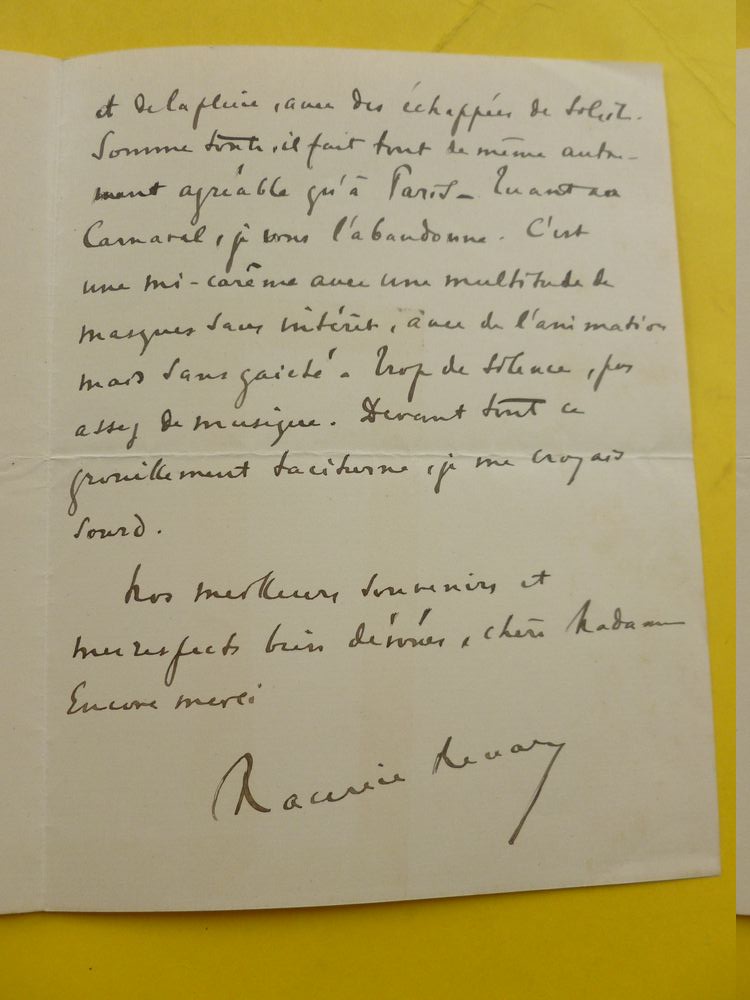 et de la pluie, avec des échappées de soleil.
Somme toute, il fait tout de même autre-
ment agréable qu'à Paris – Quant au
Carnaval, je vous l'abandonne. C'est
une mi-carême avec une multitude de
masques sans intérêt, avec de l'animation
mais sans gaieté. Trop de silence, pas
assez de musique. Devant tout ce
grouillement taciturne, je me croyais
sourd.
Nos meilleurs souvenirs et
mes respects bien dévoués, chère Madame
Encore merci
Maurice Renard